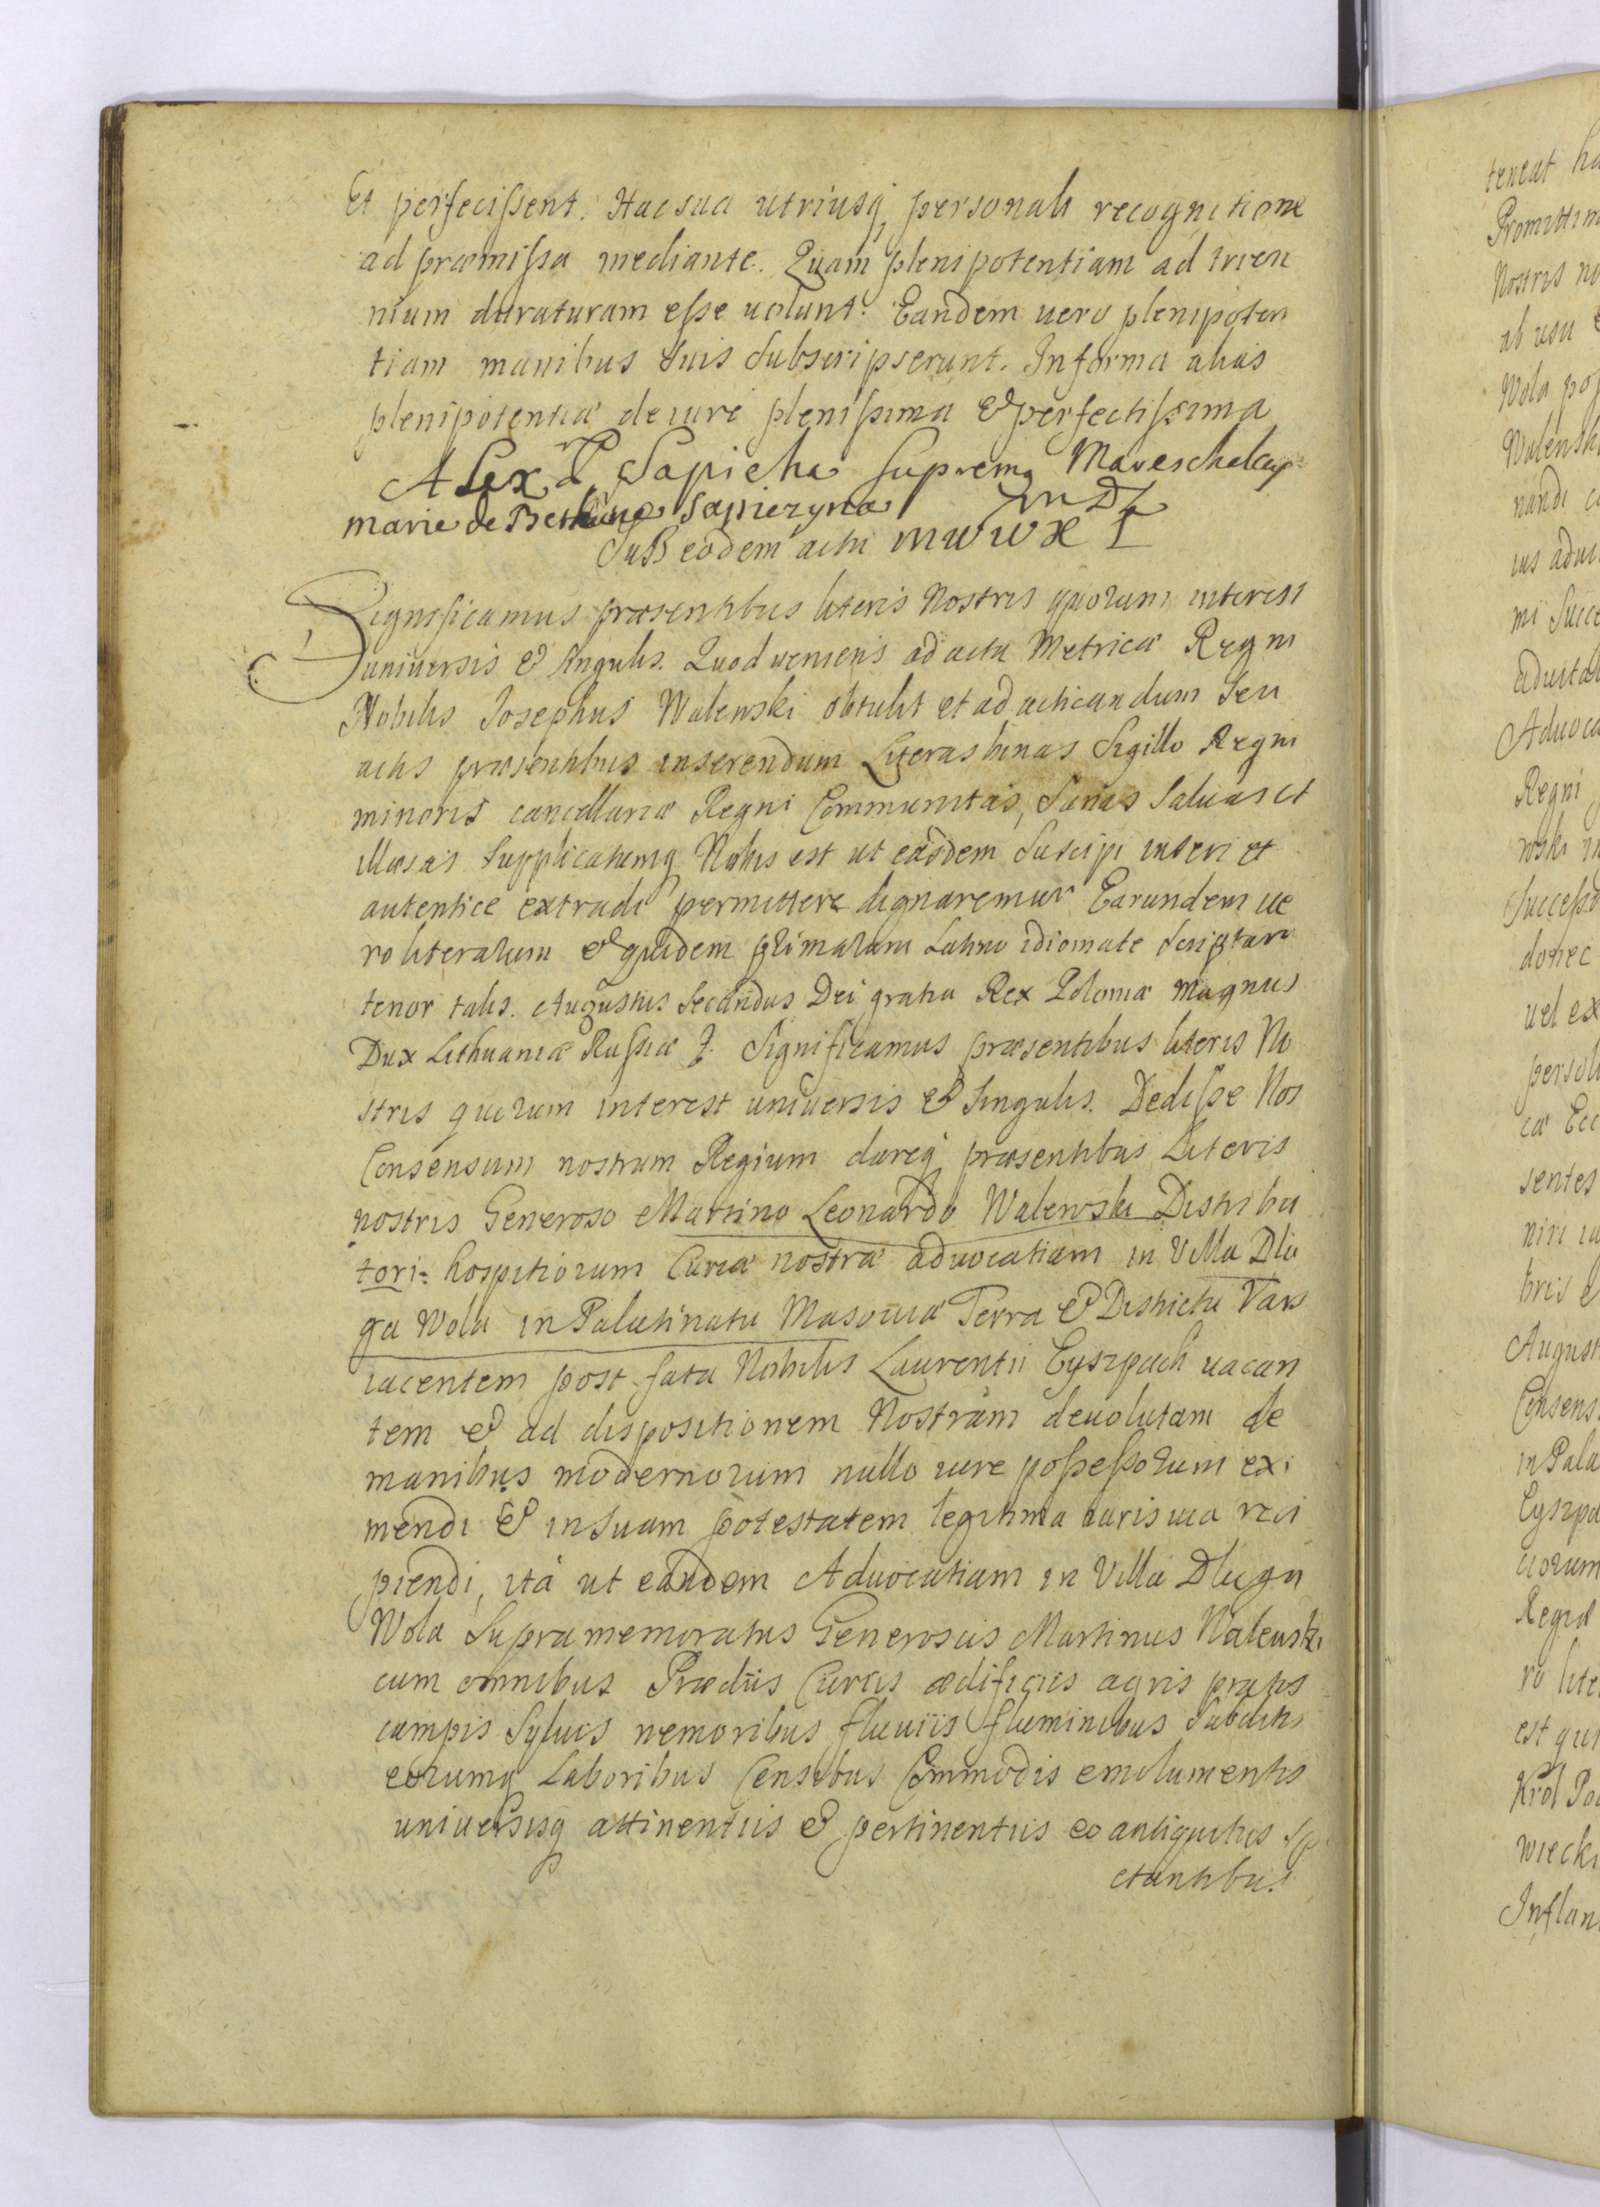 Et perfecissent. Hac sua utriusq personali recognitione
ad præmissa mediante. Quam plenipotentiam ad trien
nium duraturam esse uolunt. Eandem uero plenipoten
tiam manibus Suis Subscripserunt. In forma alias
plenipotentiæ de iure plenissima & perfectissima
Alex P Sapieha Supremq Mareschalcq
marie de Bethune Sapiezyna MDL
SuB eodem actu
Significamus præsentibus literis Nostris quorum interest
uniuersis & singulis. Quod ueniens ad acta Metricæ Regni
Nobilis Josephus Walewski obtulit et ad acticandum Seu
actis præsentibus inserendum Literas binas Sigillo Regni
minoris cancellariæ Regni Communitas, Sanas Saluas et
illæsas Supplicatumq Nobis est ut easdem Suscipi inseri et
autentice extradi permittere dignaremur Earundem ue
ro literarum & quidem primarum Latino idiomate scriptaru
tenor talis. Augustus Secundus Dei gratia Rex Poloniæ Magnus
Dux Lithuaniæ Russiæ &. Significamus præsentibus literis No
stris quorum interest uniuersis & Singulis. Dedisse Nos
Consensum nostrum Regium dareq præsentibus Literis
nostris Generoso Martino Leonardo Walewski Distribu
tori hospitiorum Curiæ nostræ aduocatiam in Villa Dlu
ga Wola in Palatinatu Masouiæ Terra & Districtu Vars
iacentem post fata Nobilis Laurentii Cyszpach uacan
tem & ad dispositionem Nostram deuolutam de
manibus modernorum nullo iure possessorum exi
mendi & in suam potestatem legitima iuris uia reci
piendi, ita ut eandem Aduocatiam in Villa Dluga
Wola Supramemoratus Generosus Martinus Walewski
cum omnibus Prædiis Curiis ædificiis agris pratis
campis Syluis nemoribus fluuiis fluminibus Subditis
eorumq Laboribus Censibus Commodis emolumentis
uniuersisq attinentiis & pertinentiis eo antiquitus sp
ctantibus